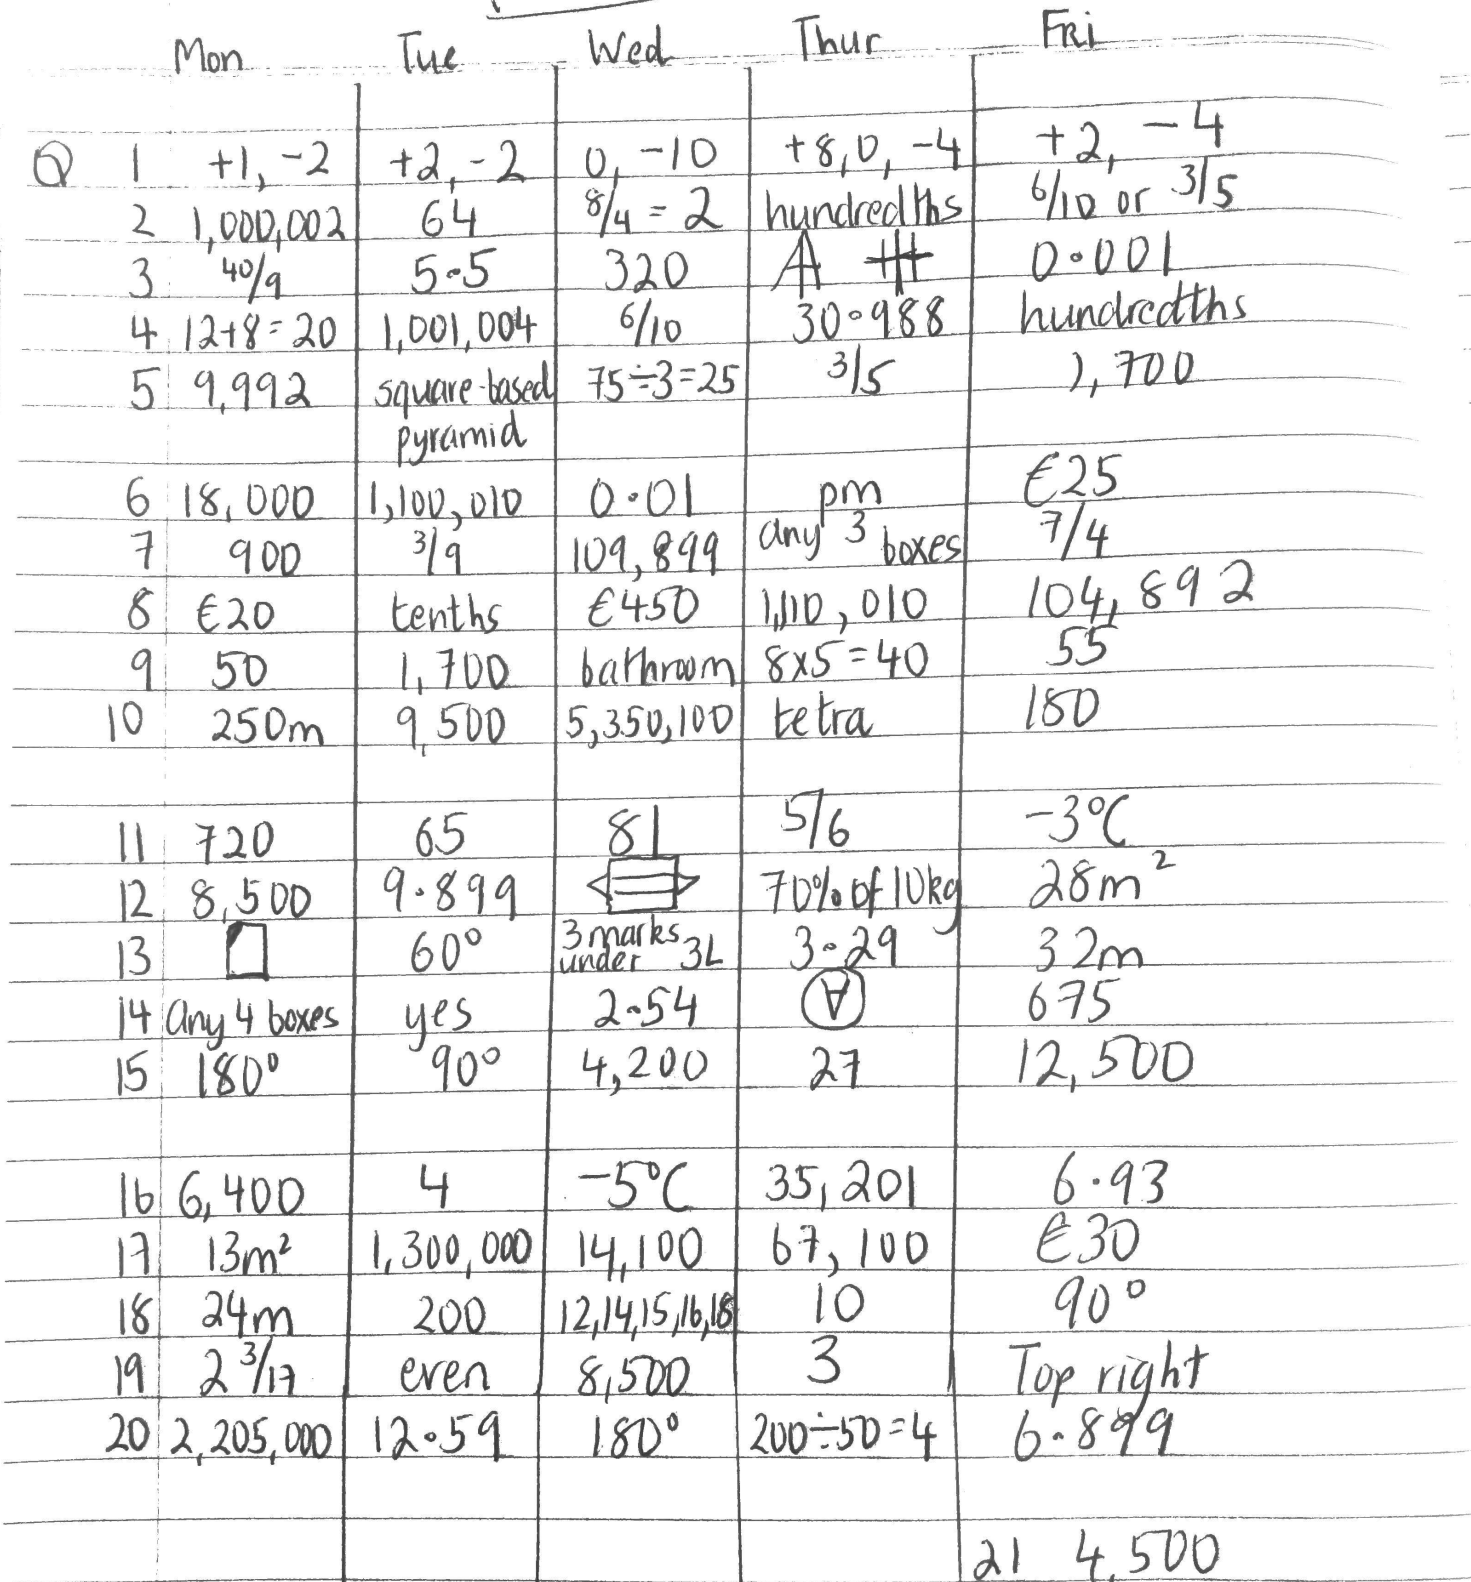 Mon Tue Wed Thur FRi
Q 1 +1, -2 +2, -2 0, -10 +8, 0, -4 +2, -4
2 1,000,002 64 8/4 = 2 hundredths 6/10 or 3/5
3 40/9 5.5 320 A 0.001
4 12+8=20 1,001,004 6/10 30.988 hundredths
5 9,992 square-based 75÷3=25 3/5 1,700
pyramid
6 18,000 1,100,010 0.01 pm €25
7 900 3/9 109,899 any 3 boxes 7/4
8 €20 tenths €450 1,110,010 104,892
9 50 1,700 bathroom 8x5=40 55
10 250m 9,500 5,350,100 tetra 180
11 720 65 81 5/6 -3°C
12 8,500 9.899 70% of 10kg 28m²
13 60° 3 marks under 3L 3.29 32m
14 any 4 boxes yes 2.54 ∀ 675
15 180° 90° 4,200 27 12,500
16 6,400 4 -5°C 35,201 6.93
17 13m² 1,300,000 14,100 67,100 €30
18 24m 200 12,14,15,16,18 10 90°
19 2 3/17 even 8,500 3 Top right
20 2,205,000 12.59 180° 200÷50=4 6.899
21 4,500